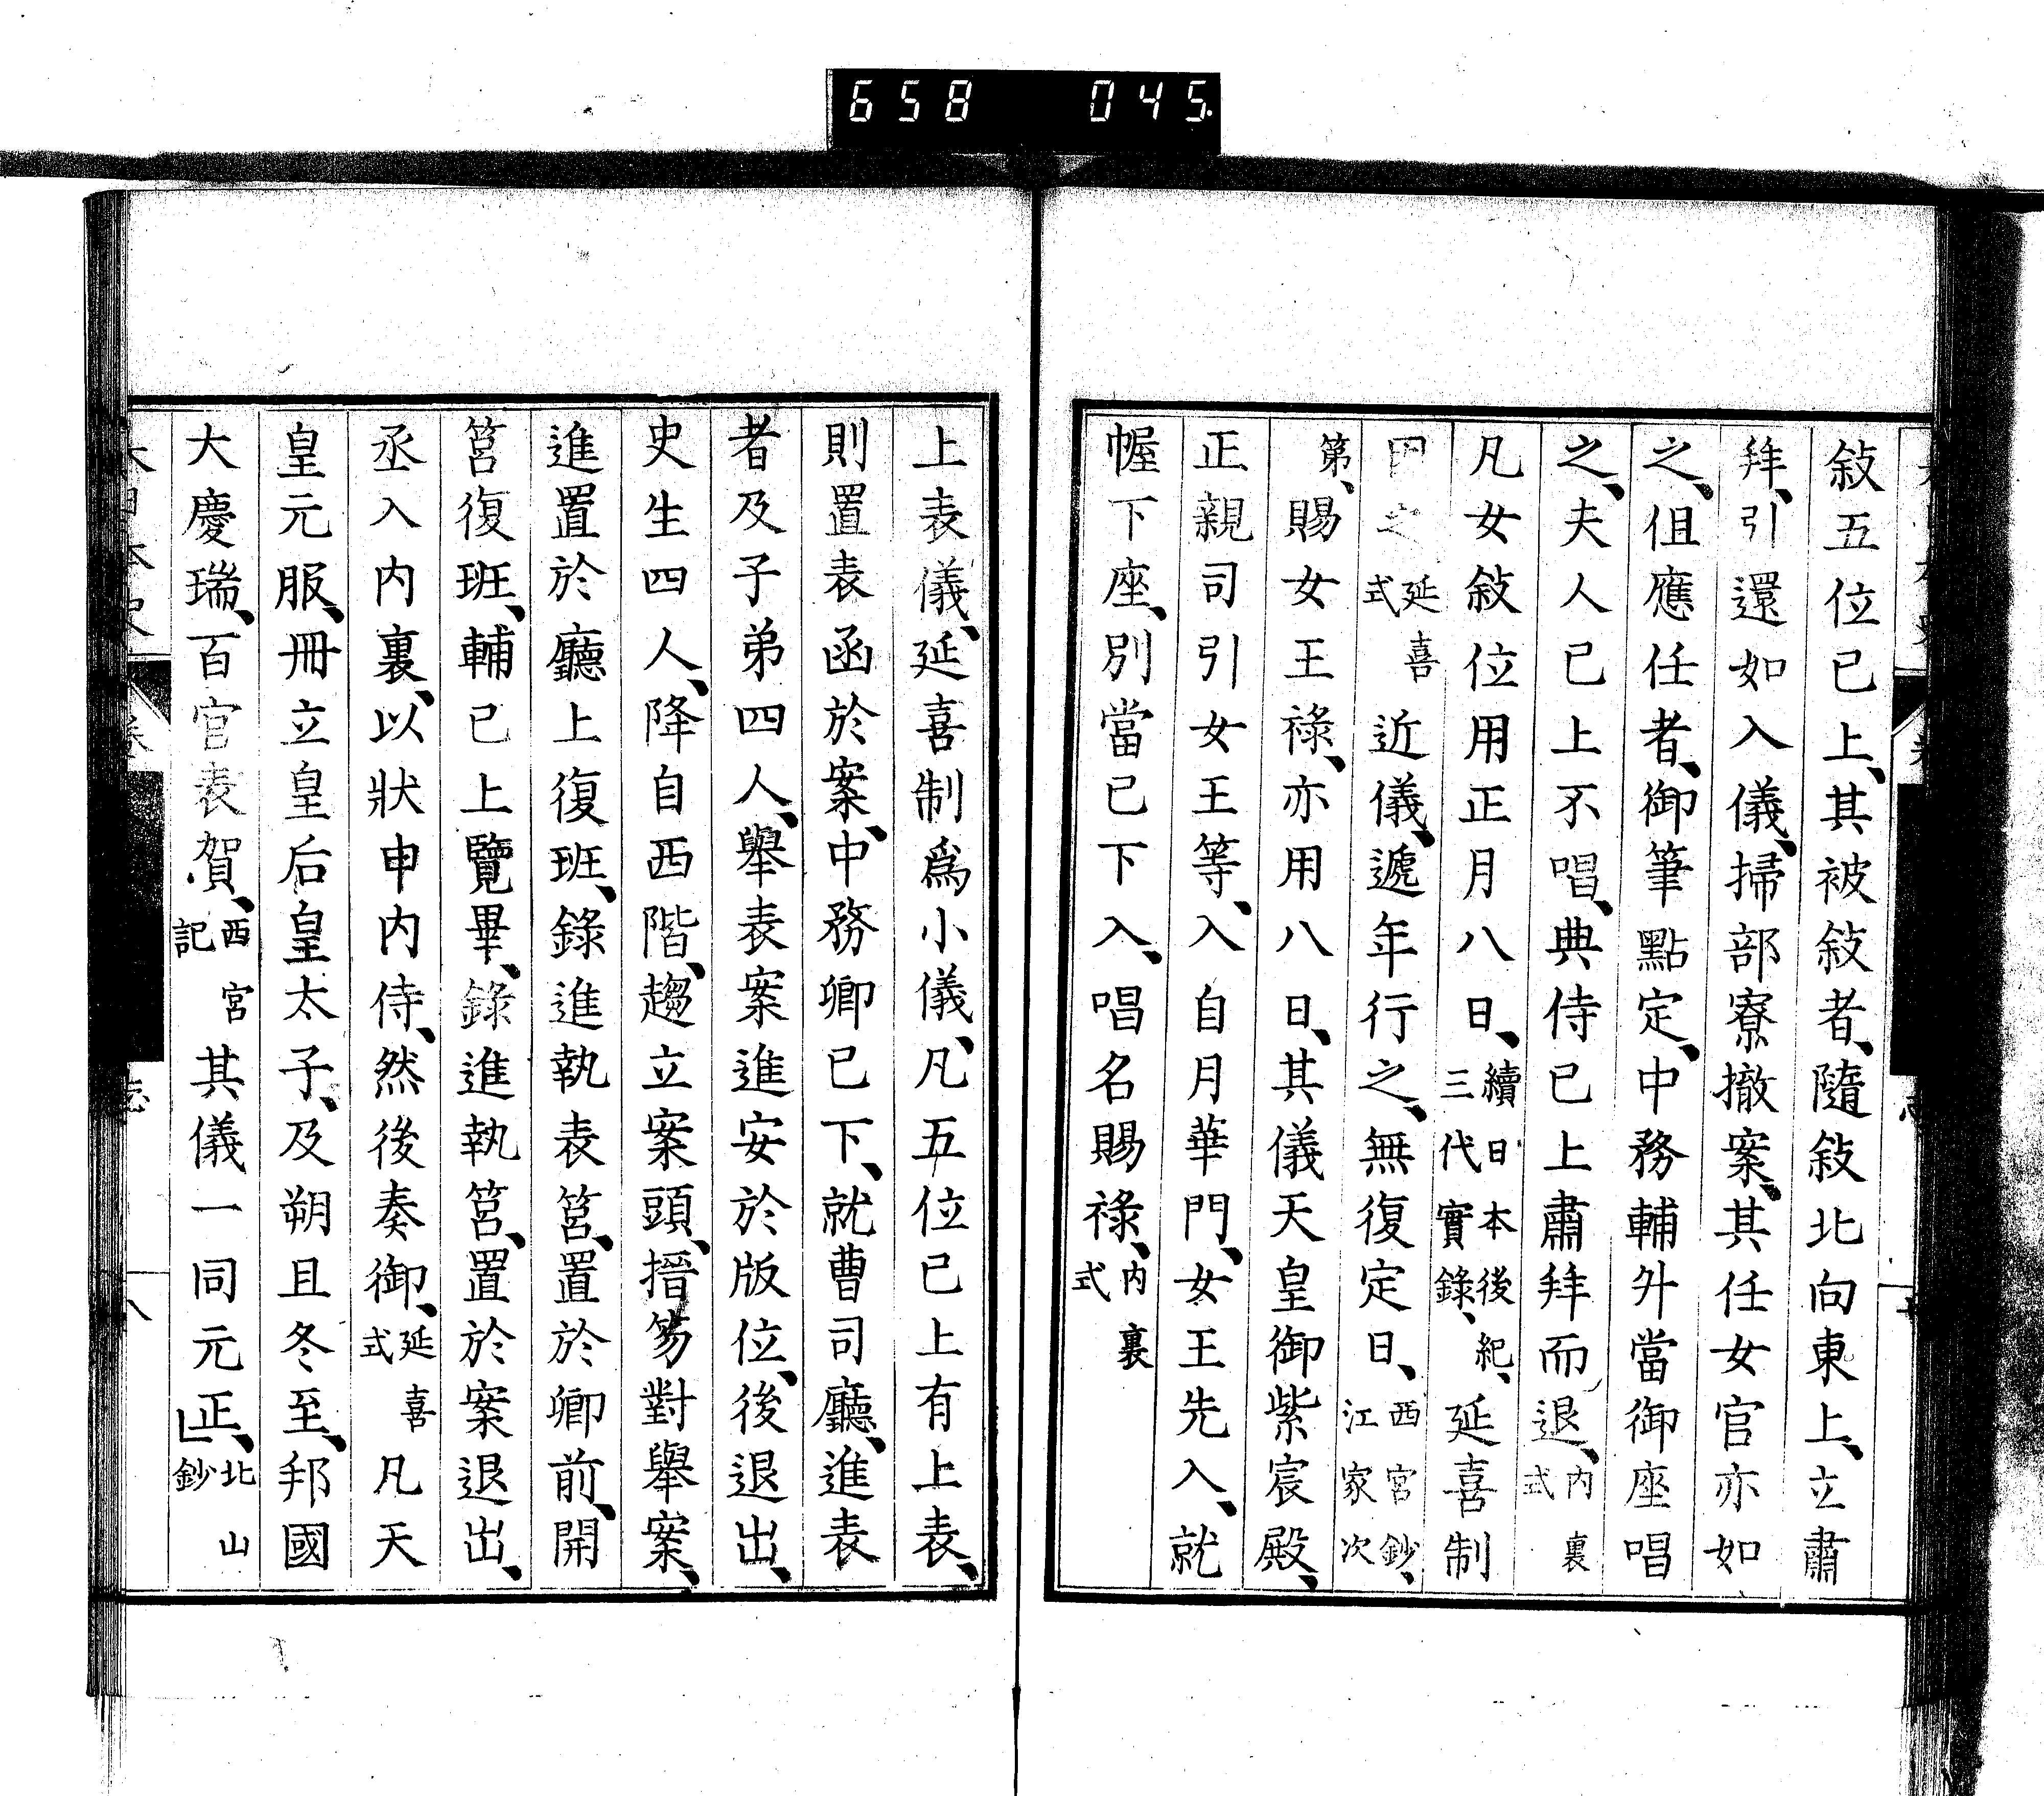 658 045
敍五位已上、其被敍者、隨敍北向東上、立肅
拜、引還如入儀、掃部寮撤案、其任女官亦如
之、但應任者、御筆點定、中務輔外當御座唱
之、夫人已上不唱、典侍已上肅拜而退、內裏式
凡女敍位用正月八日、續日本後紀、三代實錄、延喜制
因之延喜式近儀、遞年行之、無復定日、西宮鈔、江家次
第、賜女王祿、亦用八日、其儀天皇御紫宸殿、
正親司引女王等、入自月華門、女王先入、就
幄下座、別當已下入、唱名賜祿、內裏式
上表儀、延喜制爲小儀、凡五位已上有上表、
則置表函於案、中務卿已下、就曹司廳、進表
者及子弟四人、舉表案進安於版位、後退出、
史生四人、降自西階、趨立案頭、搢笏對舉案、
進置於廳上復班、錄進執表筥、置於卿前、開
筥復班、輔已上覽畢、錄進執筥、置於案退出、
丞入內裏、以狀申內侍、然後奏御、延喜式凡天
皇元服、冊立皇后皇太子、及朔旦冬至、邦國
大慶瑞、百官表賀、西宮記其儀一同元正、北山鈔